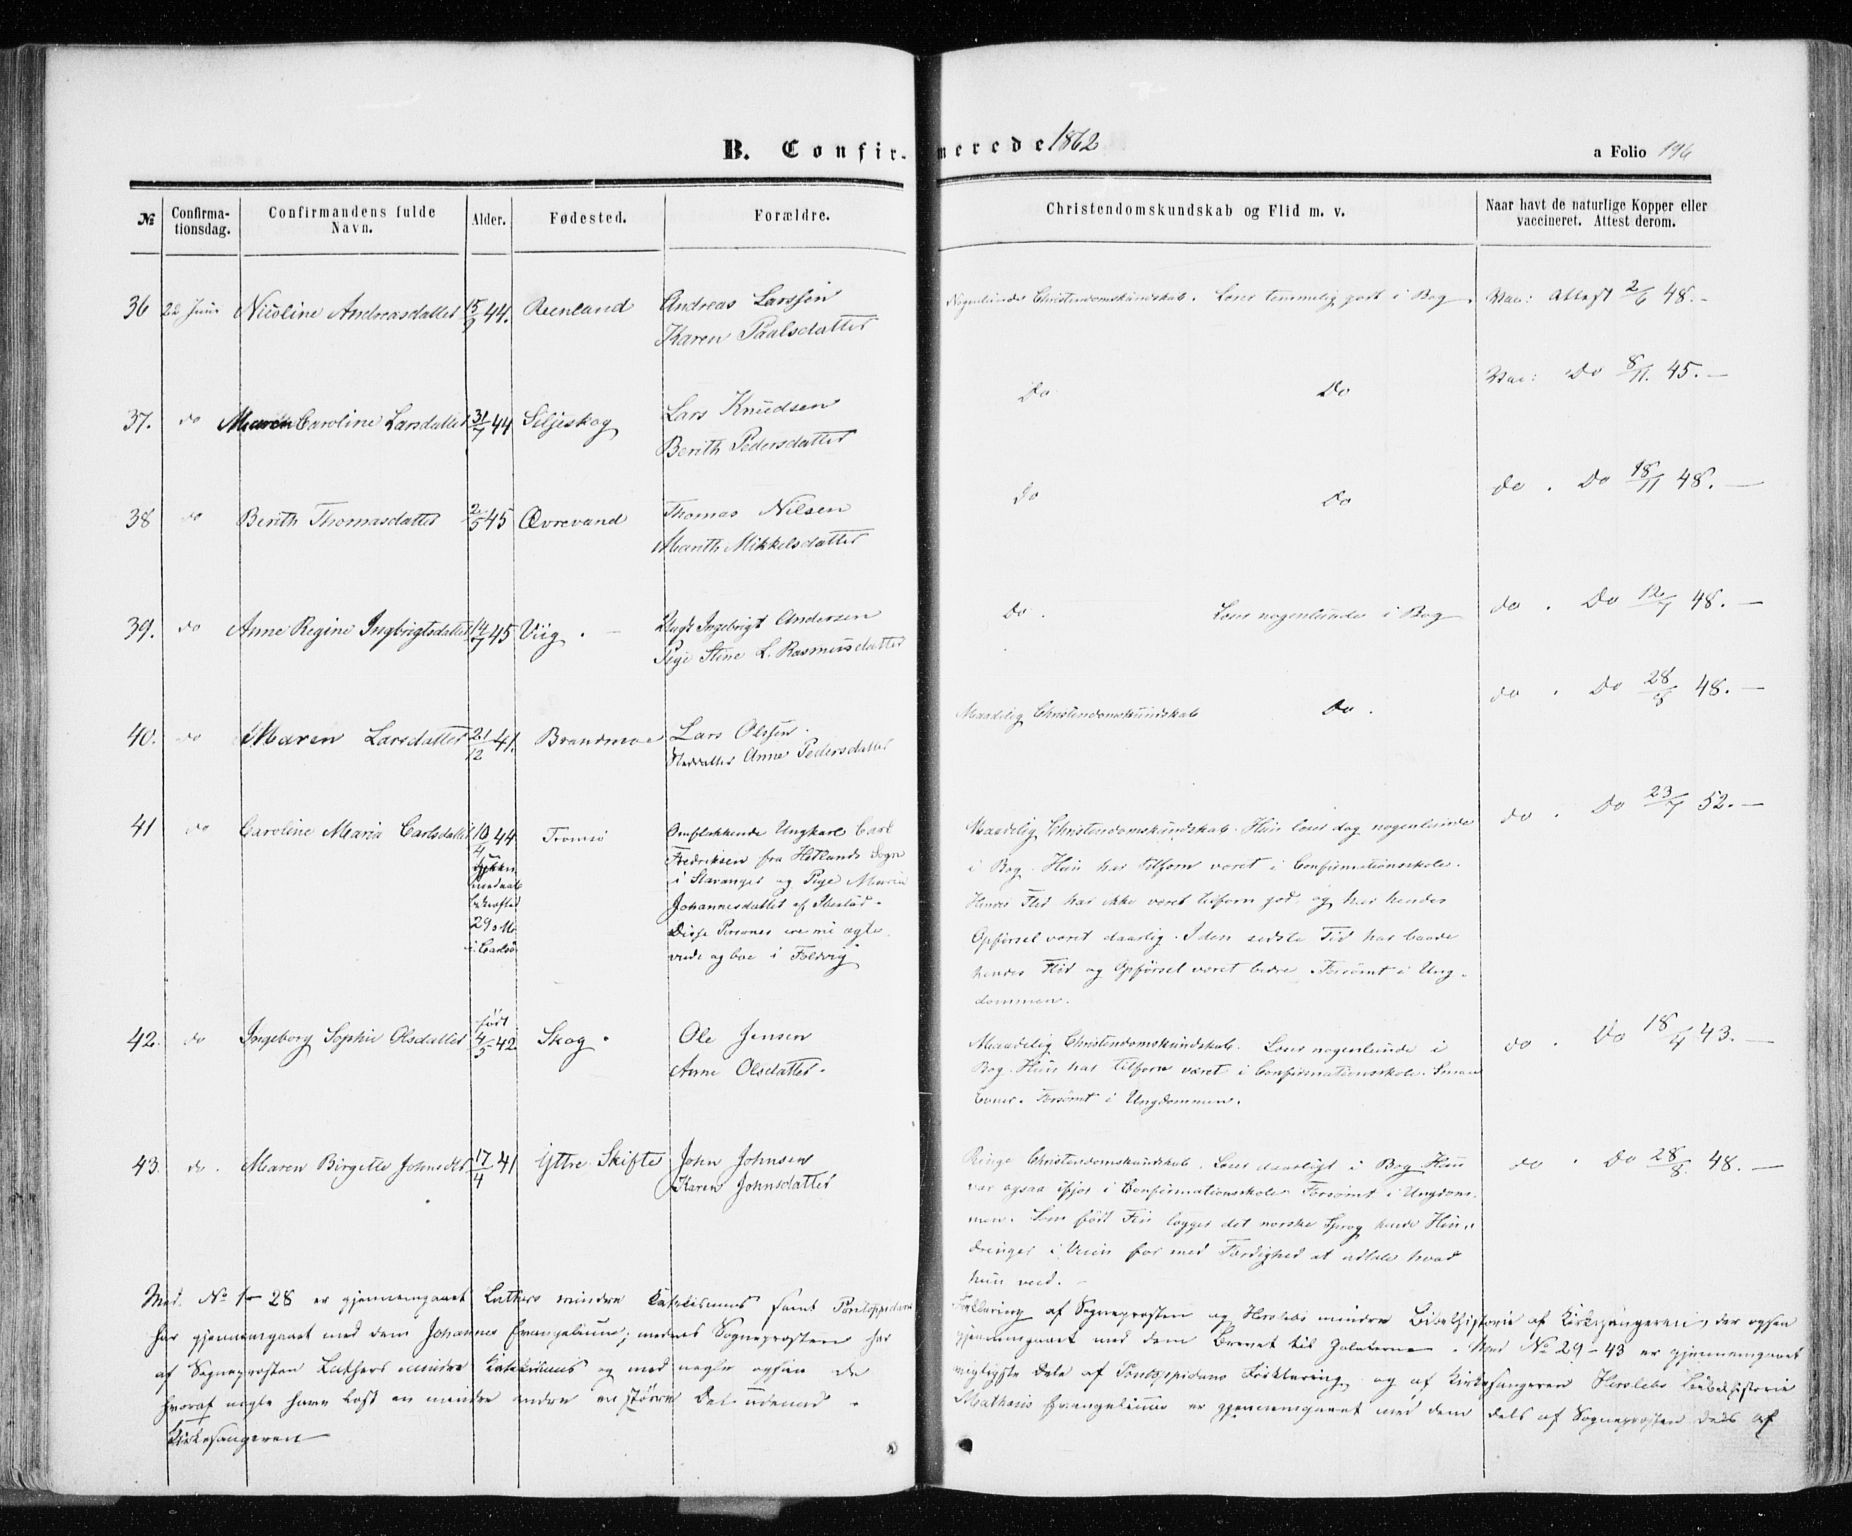 B. Confirmerede 1862
a Folio 196
№
Confirma-
tionsdag.
Confirmandens fulde
Navn.
Alder.
Fødested.
Forældre.
Christendomskundskab og Flid m. v.
Naar havt de naturlige Kopper eller
vaccineret. Attest derom.
36 22 Juni Nicoline Andreasdatter 15/9 44. Reenland Andreas Larssen
Karen Paalsdatter
Nogenlunde Christendomskundskab. Læser temmelig godt i Bog. Vac: Attest 2/6 48.-
37. do Maren Caroline Larsdatter 31/7 44 Seljeskog Lars Knudsen
Berith Pedersdatter
Do Do Vac: Do 8/11. 45.-
38 do Berith Thomasdatter 2/5 45 Øvrevand Thomas Nilsen
Marith Mikkelsdatter
Do Do do. Do 18/11 48.-
39. do Anne Regine Ingbrigtsdatter 14/7 45 Viig.- Ungk Ingebrigt Andersen
Pige Stine L. Rasmusdatter
Do. Læser nogenlunde i Bog do. Do 12/7 48.-
40. do Maren Larsdatter 21/12 41. Brandmoe Lars Olssen.
Steddatter Anne Pedersdatter
Maadelig Christendomskundskab Do. do. Do 28/8 48.-
41 do Caroline Maria Carlsdatter 10/4 44 Tromsø Omflakkende Ungkarl Carl
Fredriksen fra Hetlands Sogn
i Stavanger og Pige Maria
Johannesdatter af Ibestad.
Disse Personer ere nu ægte
viede og boe i Foldvig
29
Maadelig Christendomskundskab. Hun læser dog nogenlunde
i Bog. Hun har tilforn været i Confirmationsskole.
Hendes Flid har ikke været tilforn god, og har hendes
Opførsel været daarlig. I den sidste Tid har baade
hendes Flid og Opførsel været bedre. Forsømt i Ung-
dommen.
do. Do 23/7 52.-
42. do Ingeborg Sophie Olsdatter født 4/5 42 Skog. Ole Jensen
Anne Olsdatter.
Maadelig Christendomskundskab. Læser nogenlunde i
Bog. Hun har tilforn været i Confirmationsskole. Smaa
Evner. Forsømt i Ungdommen.
do. Do 18/4 43.-
43. do. Maren Birgette Johnsdtr 17/4 41 Yttre Skifte John Johnsen
Karen Johnsdatter
Ringe Christendomskundskab. Læser daarligt i Bog. Hun
var ogsaa ifjor i Confirmationsskole. Forsømt i Ungdom-
men. Som født Fin lægger det norske Sprog hende Hin-
dringer i Veien for med Færdighed at udtale hvad
hun veed.-
do. Do 28/8. 48.-
Med No 1-28 er gjennemgaaet Luthers mindre Katekismus samt Pontoppidans Forklaring af Sogneprosten og Herslebs mindre Bibelhistorie af Kirkesangeren, der ogsaa
har gjennemgaaet med dem Johannes Evangelium; medens Sogneprosten har gjennemgaaet med dem Brevet til Galaterne. Med No 29-43 er gjennemgaaet
af Sogneprosten Luthers mindre Katekismus og med nogle ogsaa de vigtigste Dele af Pontoppidans Forklaring og af Kirkesangeren Herslebs Bibelhistorie
hvoraf nogle have læst en mindre andre en større Del udenad. Mathæus Evangelium er gjennemgaaet med dem dels af Sogneprosten dels af
Kirkesangeren